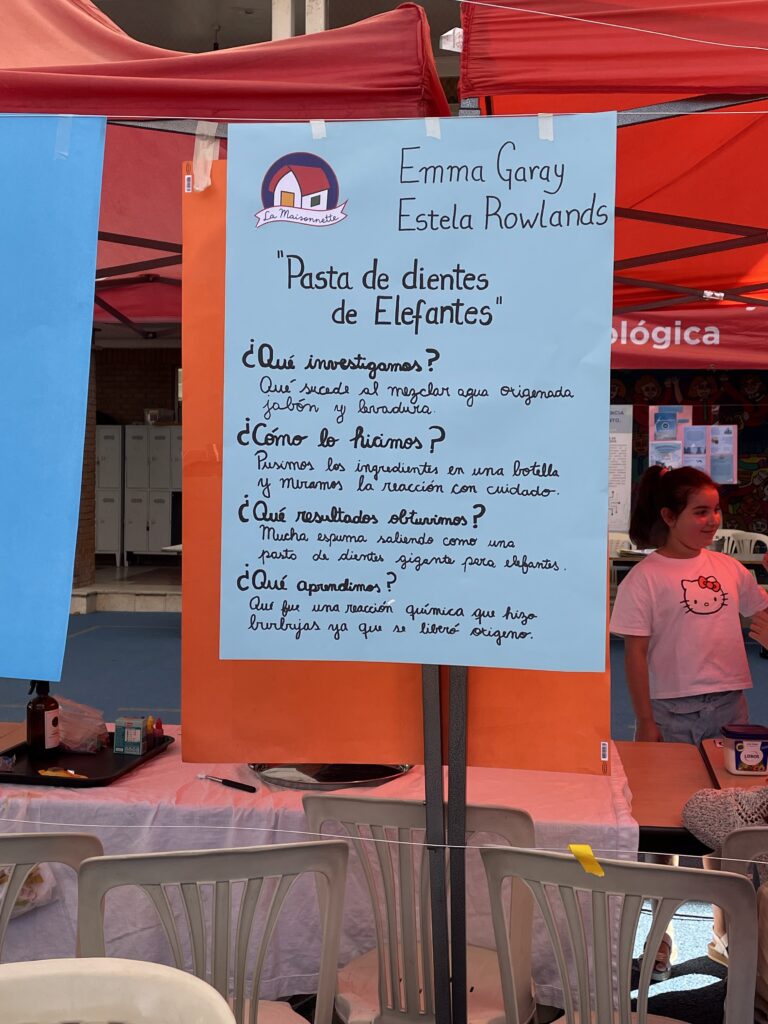 La Maisonnette
Emma Garay
Estela Rowlands
"Pasta de dientes
de Elefantes"
¿Qué investigamos?
Qué sucede al mezclar agua origenada
jabón y levadura.
¿Cómo lo hicimos?
Pusimos los ingredientes en una botella
y miramos la reacción con cuidado.
¿Qué resultados obtuvimos?
Mucha espuma saliendo como una
pasta de dientes gigante para elefantes.
¿Qué aprendimos?
Que fue una reacción química que hizo
burbujas ya que se liberó origeno.
ológica